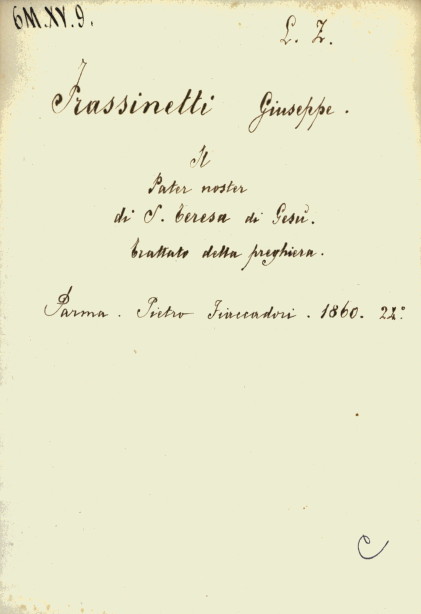 6M.XV.9.
L. Z.
Frassinetti Giuseppe.
Il
Pater noster
di S. Teresa di Gesù.
Trattato della preghiera.
Parma. Pietro Fiaccadori. 1860. 22°
C